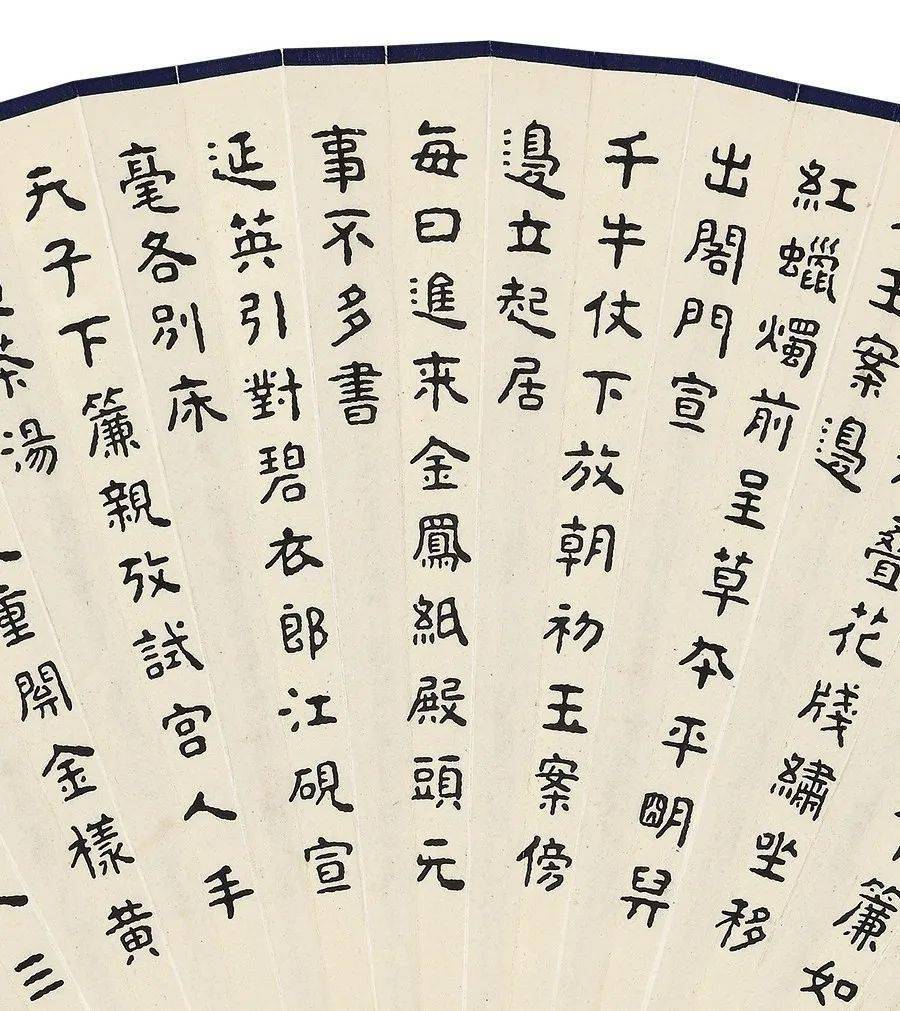 簾如
疊花牋繡坐移
玉案邊
紅蠟燭前呈草本平朙舁
出閣門宣
千牛仗下放朝初玉案傍
邊立起居
每日進來金鳳紙殿頭无
事不多書
延英引對碧衣郎江硯宣
毫各別床
天子下簾親攷試宮人手
茶湯
重関金樣黃
三